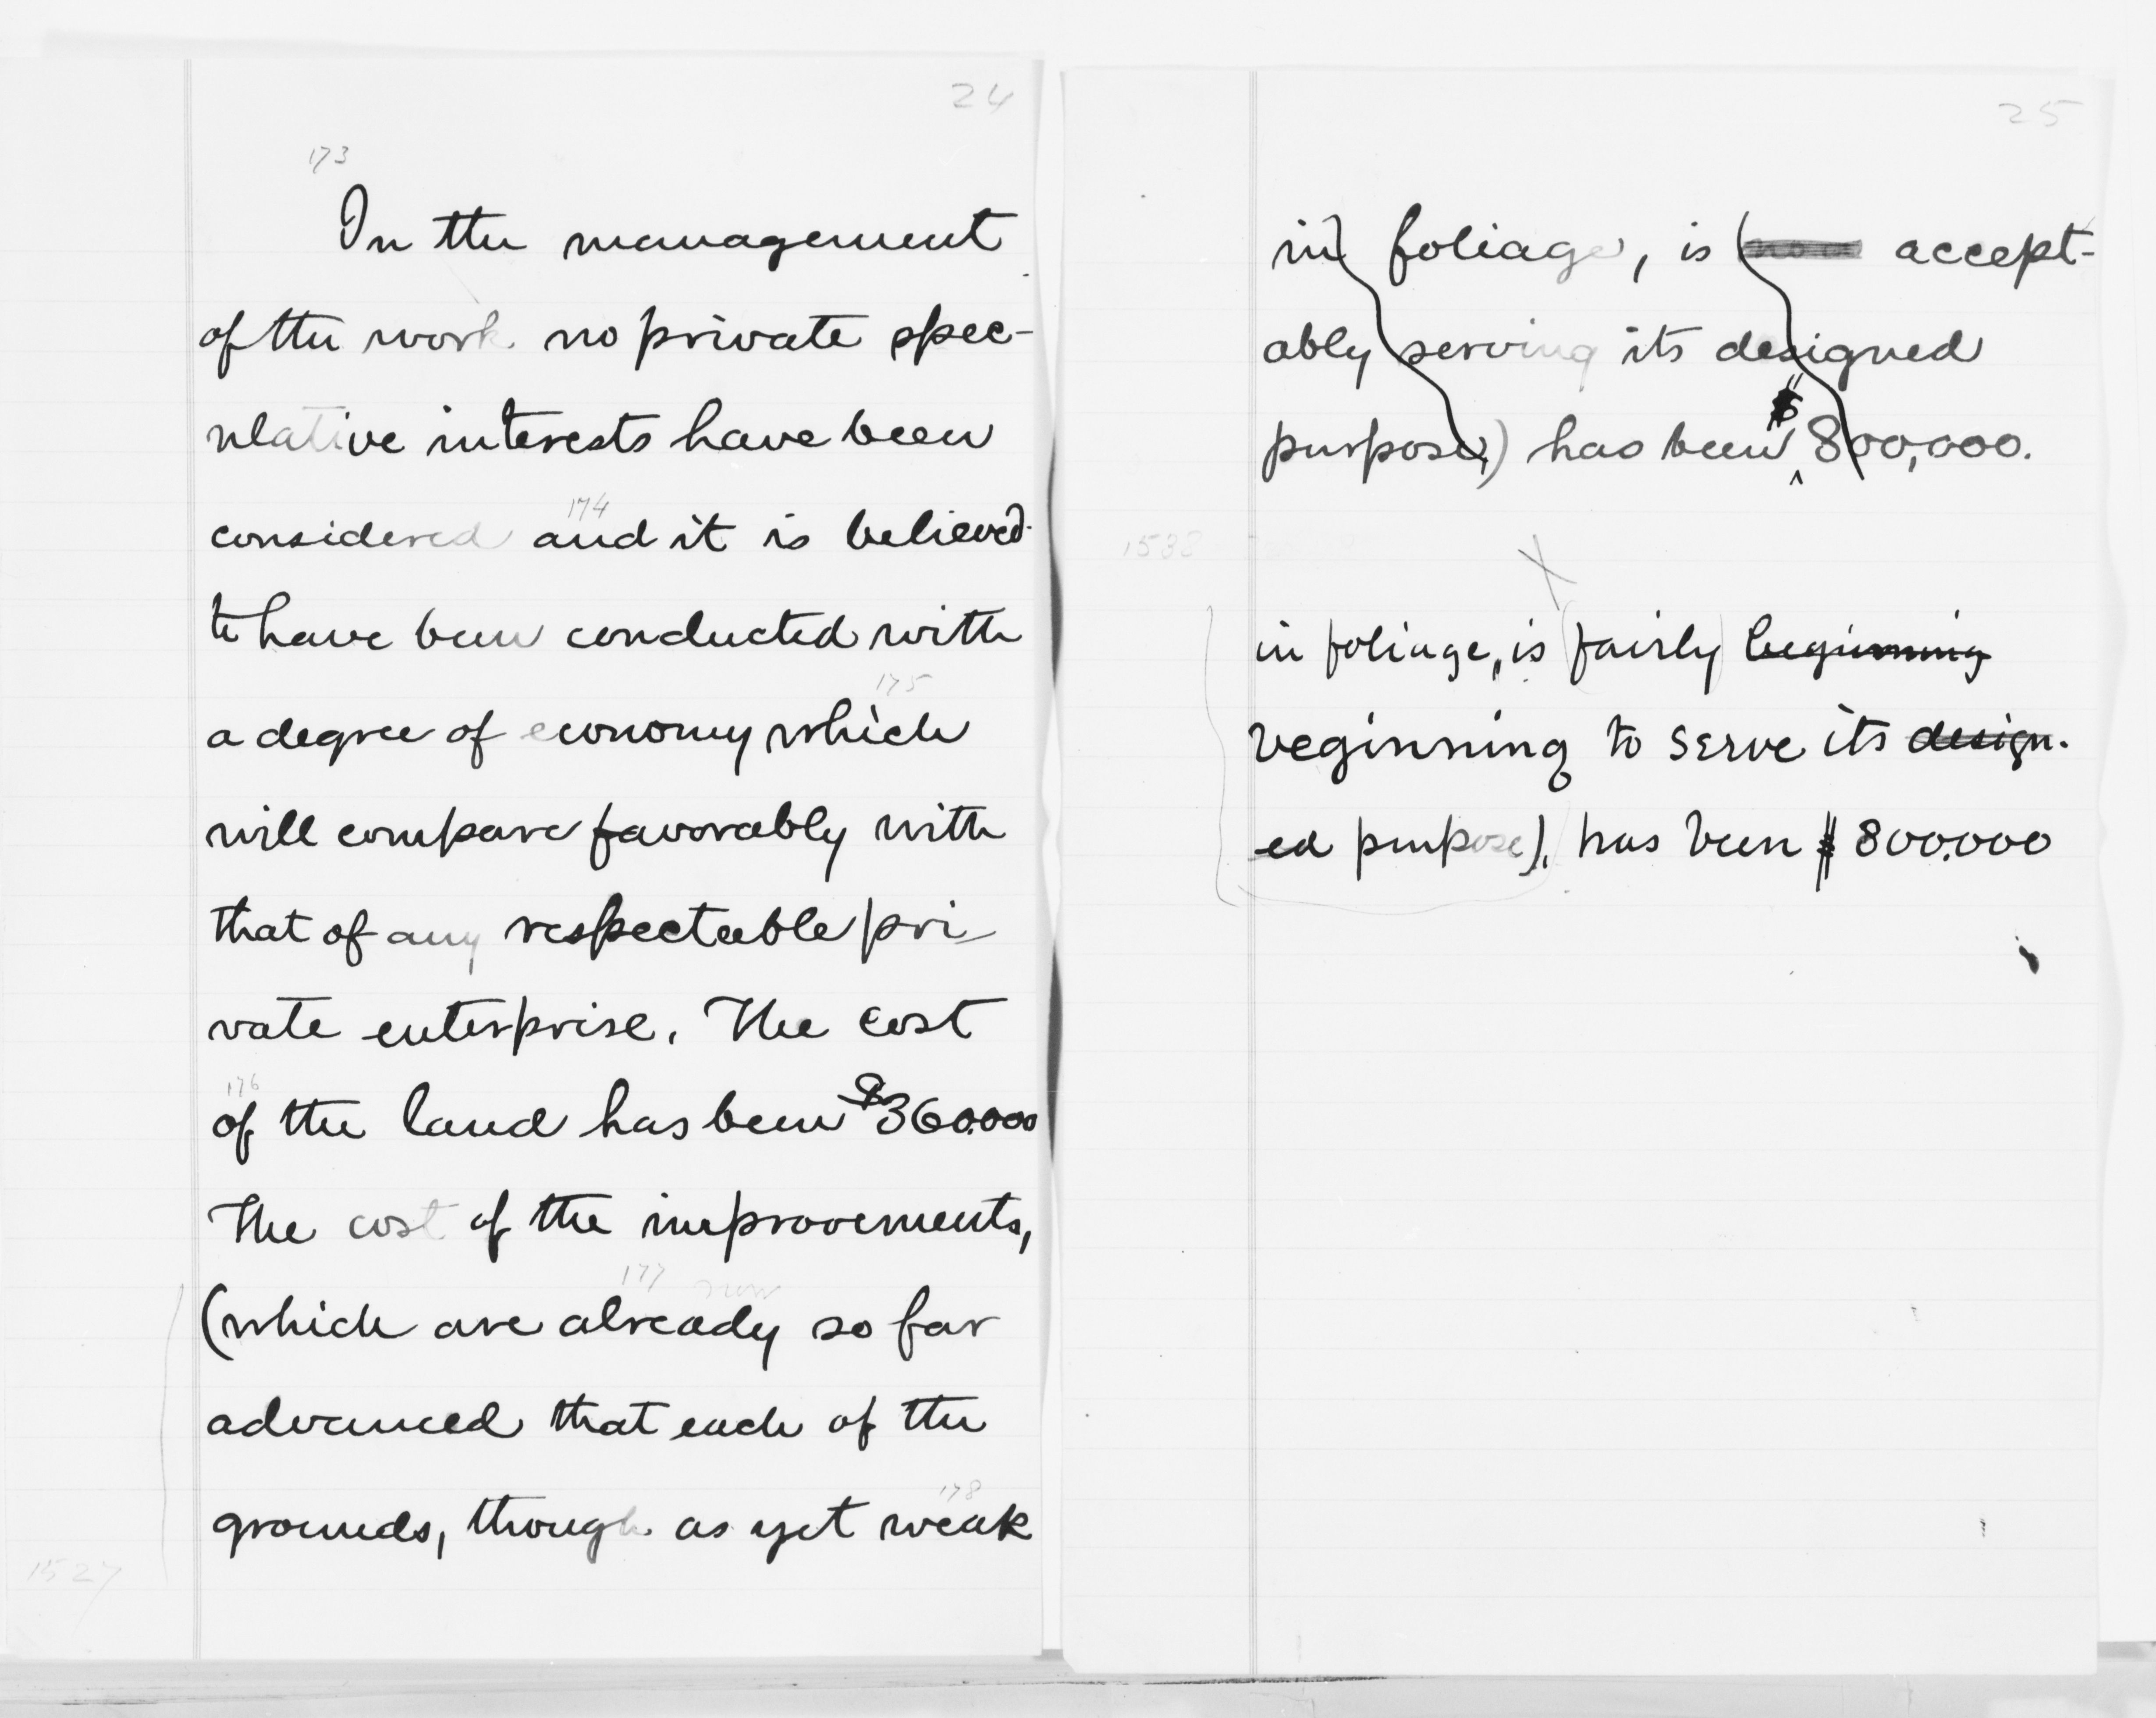 24
173
In the management
of the work no private spec-
ulative interests have been
174
considered and it is believed
to have been conducted with
175
a degree of economy which
will compare favorably with
that of any respectable pri-
vate enterprise. The cost
176
of the land has been $360.000
The cost of the improvements,
177 now
(which are already so far
advanced that each of the
178
grounds, though as yet weak
1527
25
in) foliage, is ( accept-
ably serving its designed
purpose,) has been $ 800,000.
1532
X
in foliage, is (fairly) beginning
beginning to serve its design-
ed purpose), has been $ 800.000